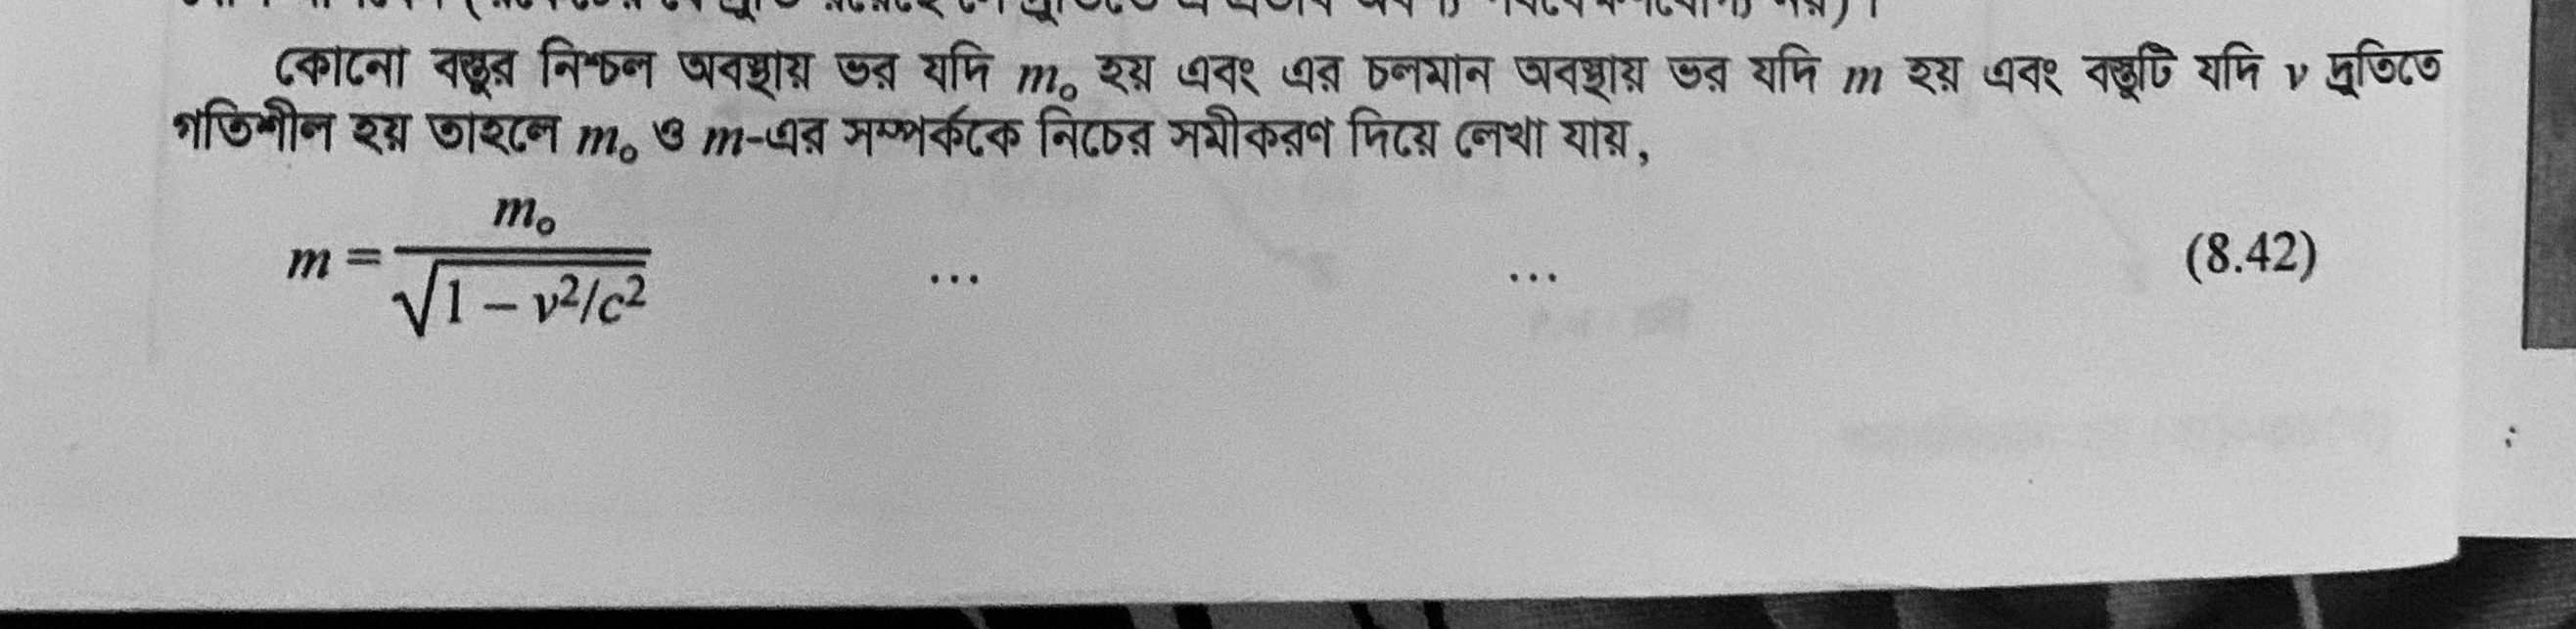 কোনো বস্তুর নিশ্চল অবস্থায় ভর যদি m₀ হয় এবং এর চলমান অবস্থায় ভর যদি m হয় এবং বস্তুটি যদি v দ্রুতিতে
গতিশীল হয় তাহলে m₀ ও m-এর সম্পর্ককে নিচের সমীকরণ দিয়ে লেখা যায়,
m = m₀ / √(1 – v²/c²) ... ... (8.42)